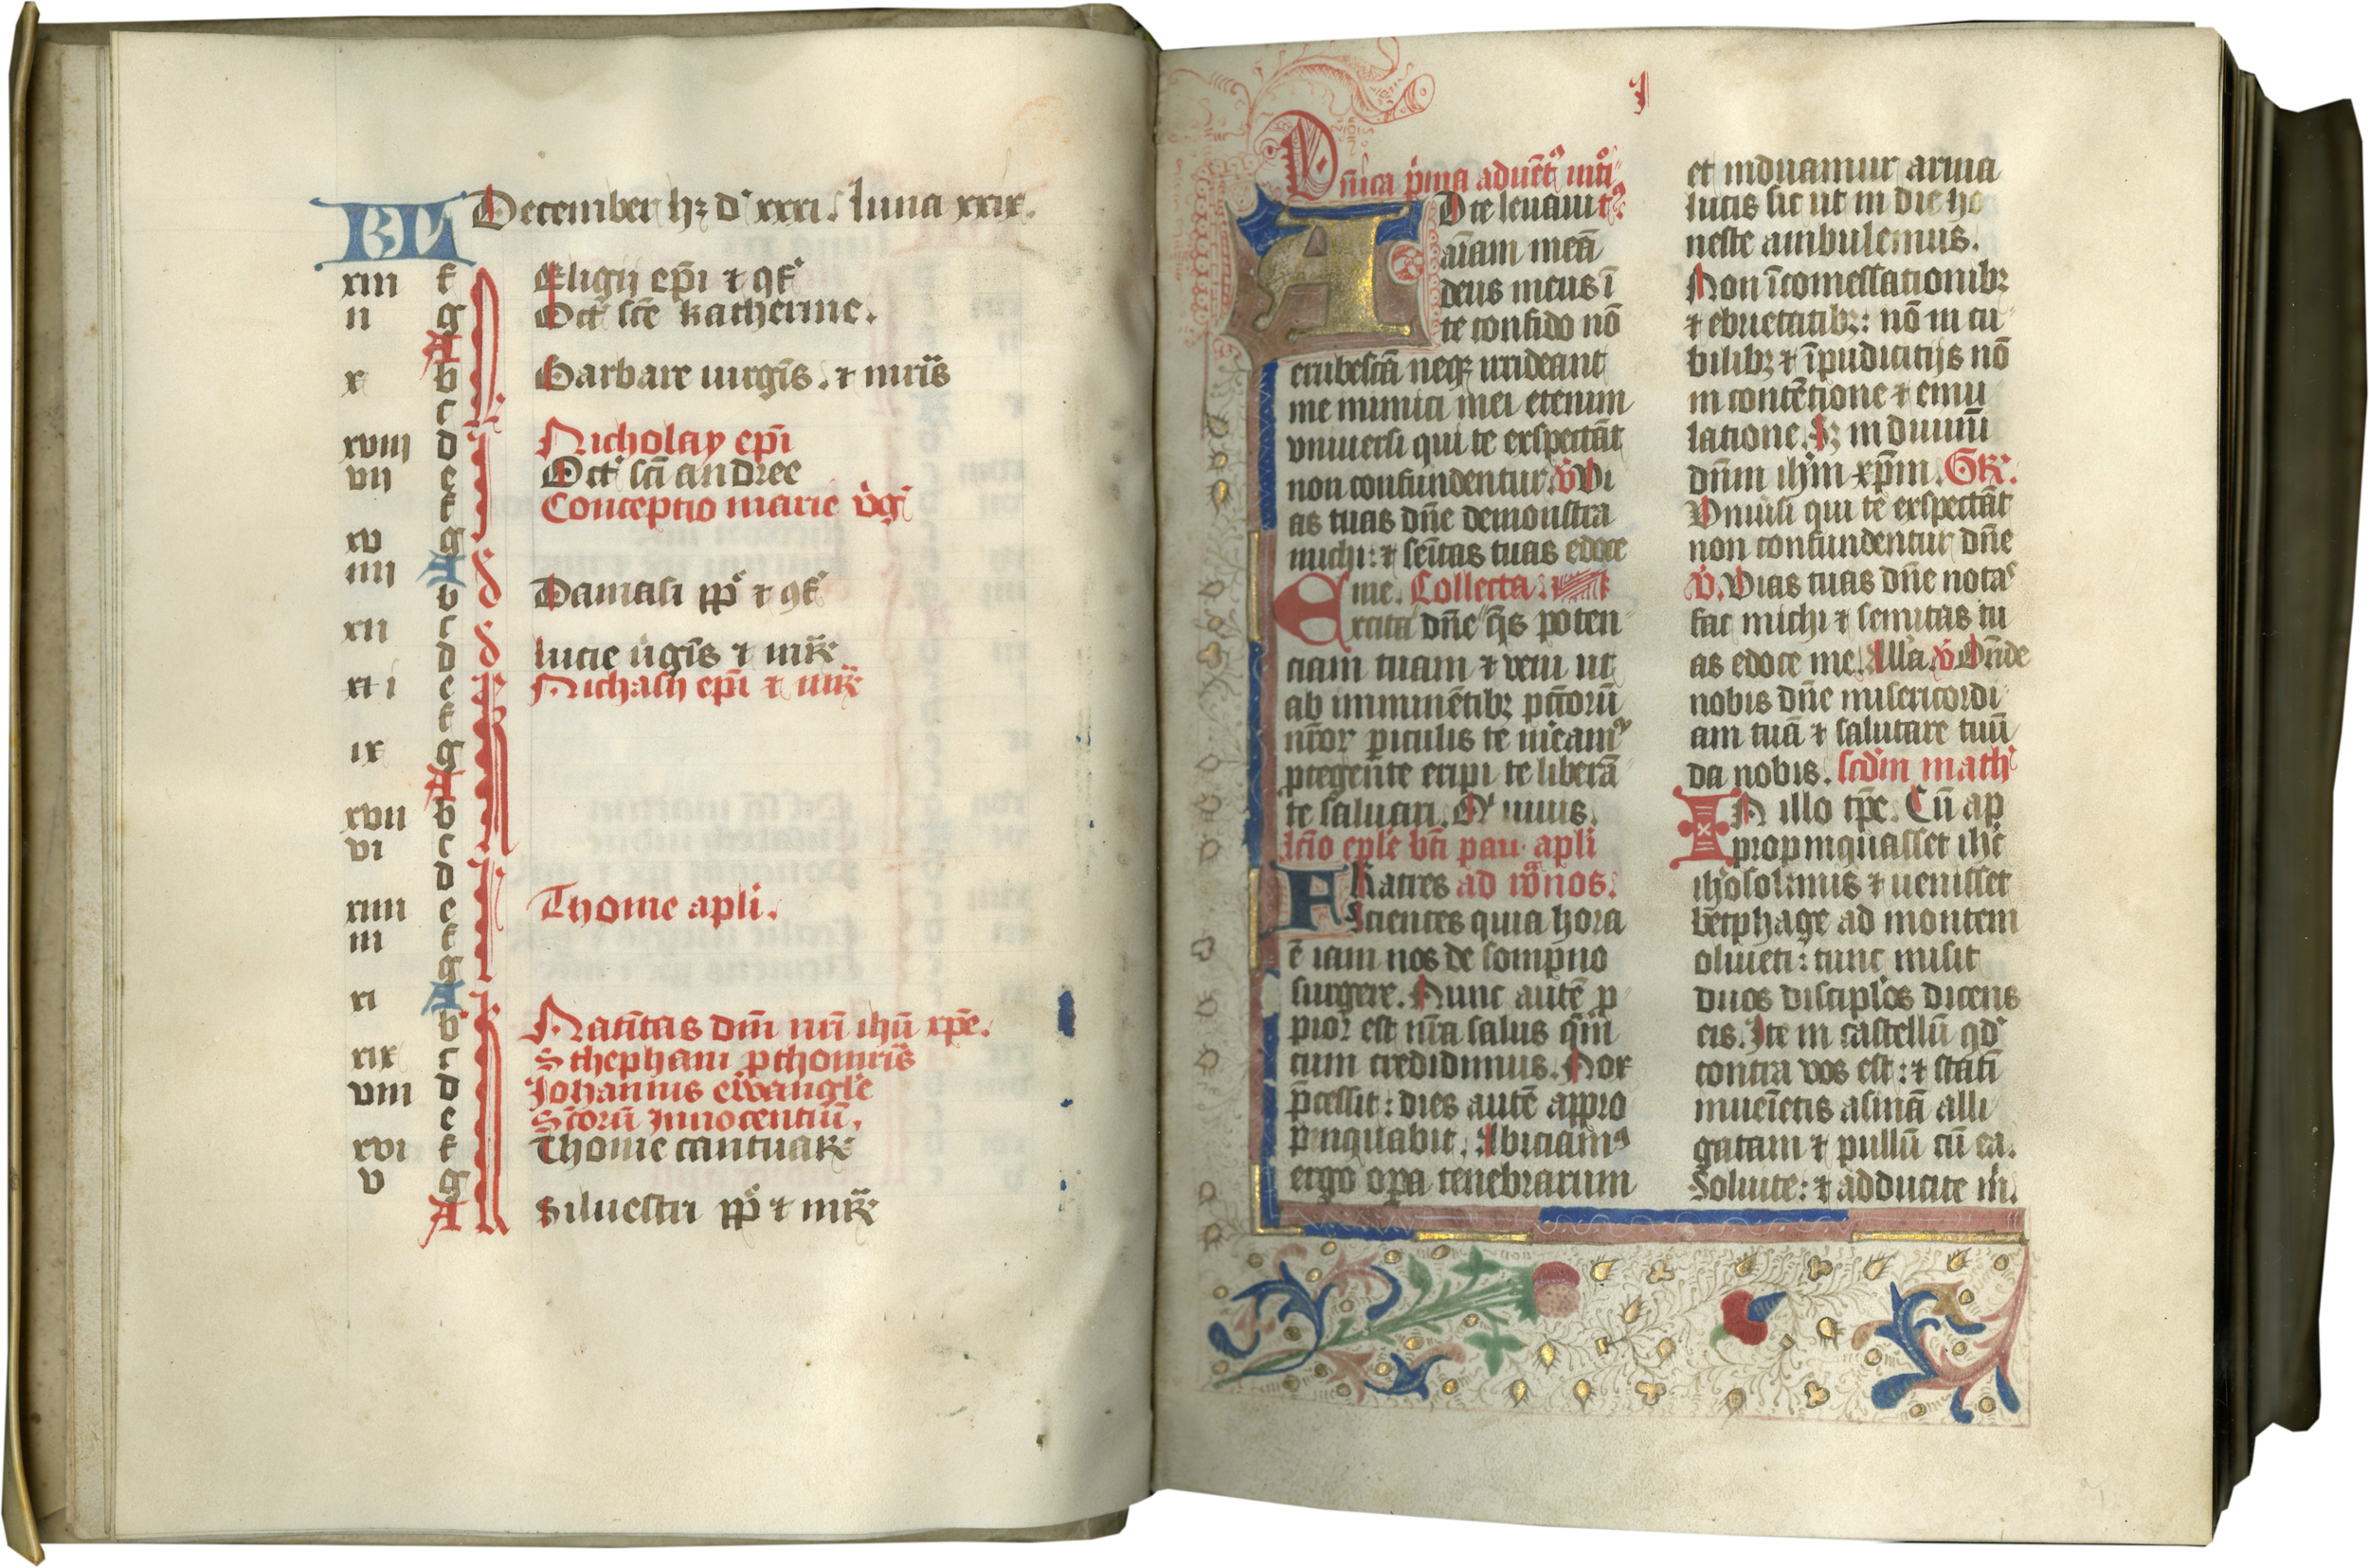 KL December hȝ d' xxxi. luna xxix.
xiii f Eligij ep̄i ⁊ ꝯf'
ii g Oct' sc̄e katherine.
A
x b Barbare uirgīs. ⁊ mr̄is
c
xviii d Nicholay ep̄i
vii e Oct' sc̄i andree
f Conceptio marie v̇gī
xv g
iiii A
b Damasi pp̄ ⁊ ꝯf'
xii c
d lucie v̇gīs ⁊ mr̄
e Nichasij ep̄i ⁊ mr̄
f
ix g
A
xvii b
vi c
d
xiiii e Thome apl̄i.
iii f
g
xi A
b Natiītas dn̄i nr̄i ihū xp̄e.
xix c Sthephani ꝓthomr̄is
viii d Johannis ewangl̄e
e Sc̄torū Innocentiū.
xvi f Thome cantuar̄
v g
A Siluestri pp̄ ⁊ mr̄
I
Dn̄ica p̄ma aduēt' int̄i
AD te leuaui t'
aīam meā
deus meus ī
te confido nō
erubescā neqȝ irrideant
me inimici mei etenim
vniuersi qui te exspectāt
non confundentur. v̇ Vi
as tuas dn̄e demonstra
michi: ⁊ semītas tuas edoce
me. Collecta.
Excita dn̄e q̄s poten
ciam tuam ⁊ veni ut
ab imminētibȝ pctōrū
nr̄or̄ ꝑiculis te m̄eam'
ꝓtegente eripi te liberā
te saluari. Q' uiuis.
lcīo epl̄e bt̄i pau. apl̄i
FRatres ad rōnos.
Scientes quia hora
ē iam nos de sompno
surgere. Nunc autē ꝓ
pior est nr̄a salus q̄m
cum credidimus. Nox
p̄cessit: dies autē appro
pinquabit. Abiciam'
ergo oꝑa tenebrarum
et induamur arma
lucis sic ut in die ho
neste ambulemus.
Non ī comessationibȝ
⁊ ebrietatibȝ: nō in cu
bilibȝ ⁊ īpudicitijs nō
in contētione ⁊ emu
latione. Sȝ induimī
dn̄m ihm̄ xp̄m. Gr̄.
Vniūsi qui te exspectāt
non confundentur dn̄e
v̇. Vias tuas dn̄e nota'
fac michi ⁊ semitas tu
as edoce me. All'a. v̇ Ostn̄de
nobis dn̄e misericordi
am tuā ⁊ salutare tuū
da nobis. scdm̄ math'
IN illo tp̄e. Cū ap
propinquasset ihc̄
ih'osolimis ⁊ uenisset
bētphage ad montem
oliueti: tunc misit
duos discipl'os dicens
eis. Ite in castellū qd'
contra vos est: ⁊ statī
inueīetis asinā alli
gatam ⁊ pullū cū ea.
Soluite: ⁊ adducite m̄.